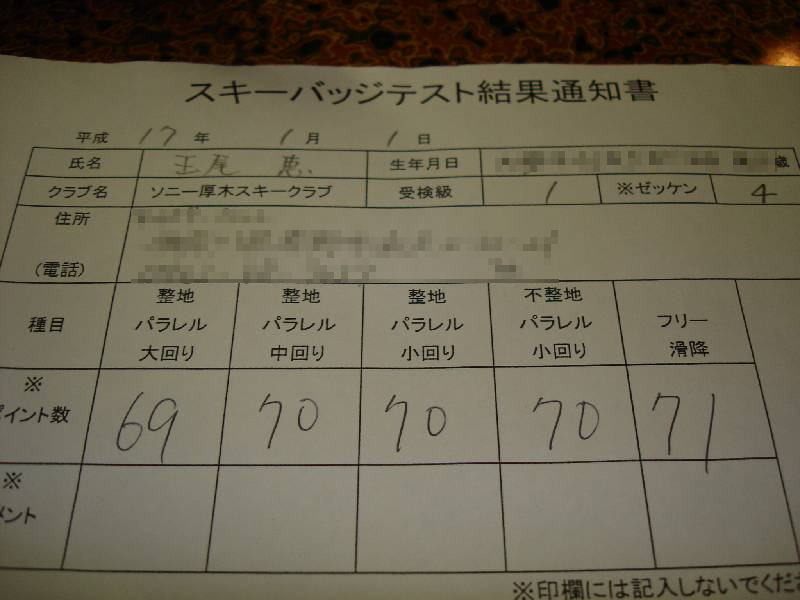 スキーバッジテスト結果通知書
平成 17 年 1 月 1 日
氏名 玉尾 恵 生年月日 歳
クラブ名 ソニー厚木スキークラブ 受検級 1 ※ゼッケン 4
住所
(電話)
種目 整地 パラレル 大回り 整地 パラレル 中回り 整地 パラレル 小回り 不整地 パラレル 小回り フリー 滑降
※
イント数 69 70 70 70 71
※
メント
※印欄には記入しないでくださ